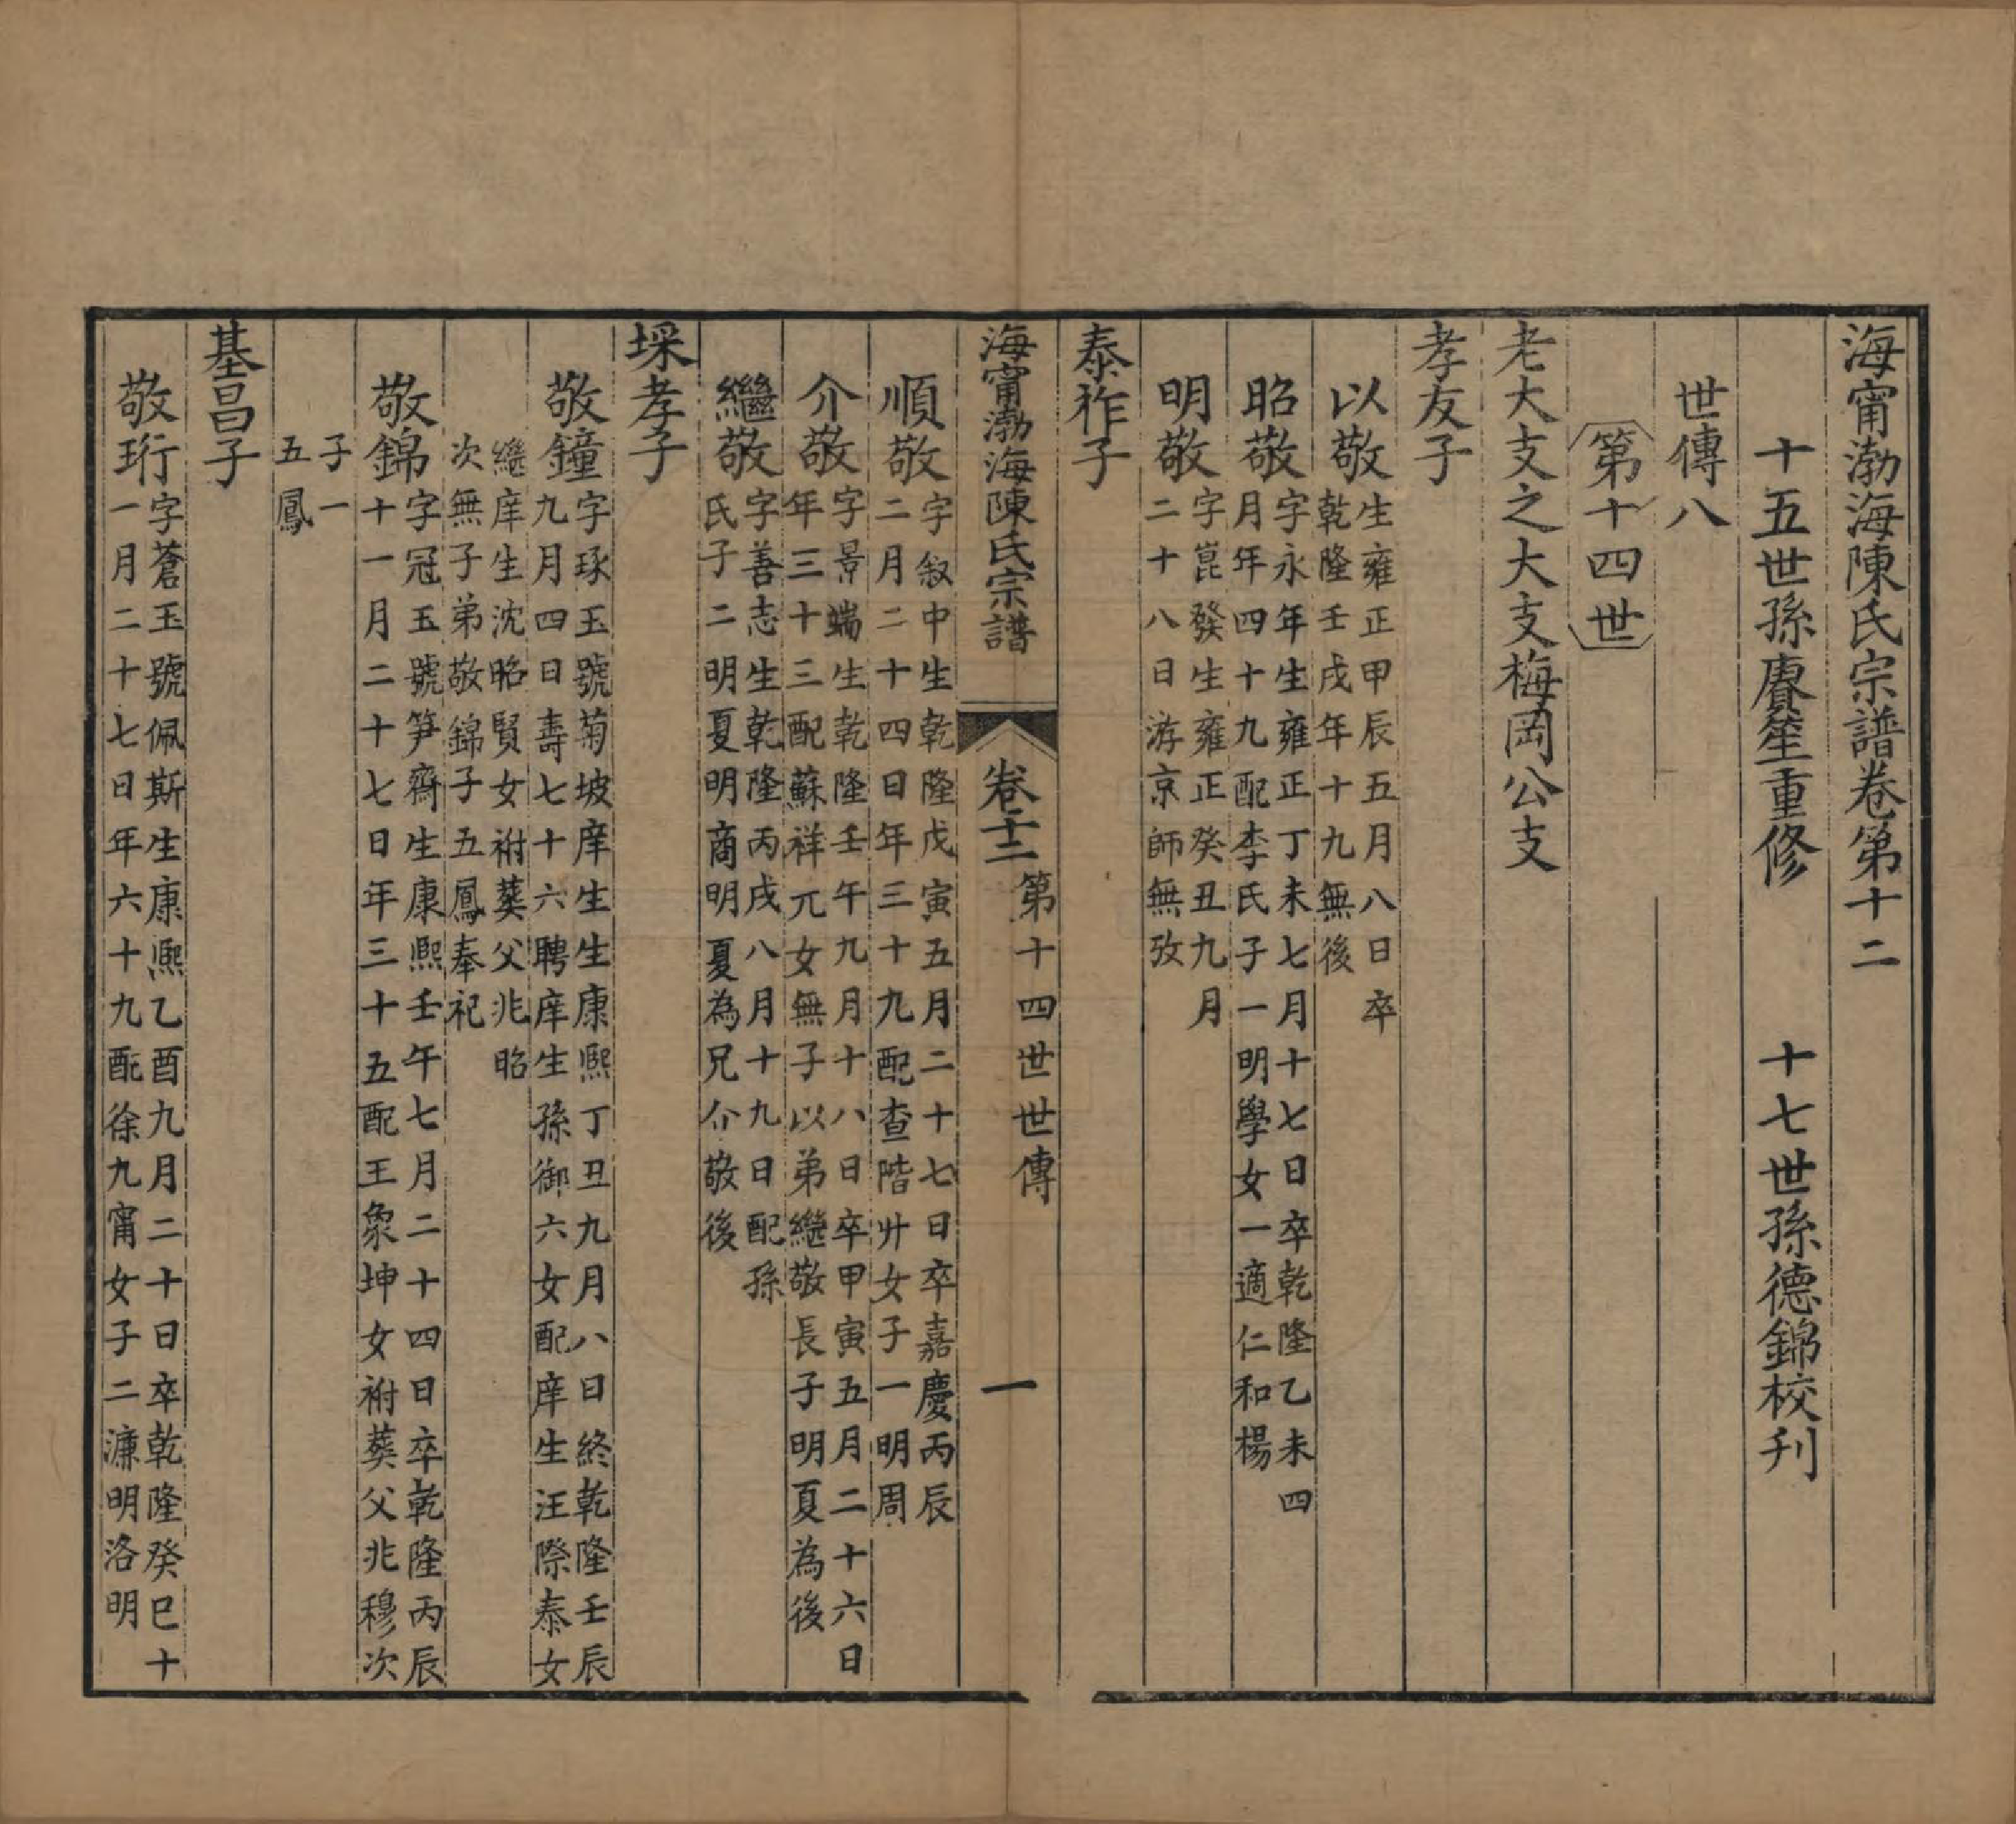 海甯渤海陳氏宗譜卷第十二
十五世孫賡笙重修　十七世孫德錦校刋
世傳八
第十四世
老大支之大支梅岡公支
孝友子
以敬生雍正甲辰五月八日卒
乾隆壬戌年十九無後
昭敬字永年生雍正丁未七月十七日卒乾隆乙未四
月年四十九配李氏子一明學女一適仁和楊
明敬字崑發生雍正癸丑九月
二十八日游京師無攷
泰祚子
海甯渤海陳氏宗譜　卷十二　第十四世世傳　一
順敬字叙中生乾隆戊寅五月二十七日卒嘉慶丙辰
二月二十四日年三十九配查階廾女子一明周
介敬字景端生乾隆壬午九月十八日卒甲寅五月二十六日
年三十三配蘇祥元女無子以弟繼敬長子明夏為後
繼敬字善志生乾隆丙戌八月十九日配孫
氏子二明夏明商明夏為兄介敬後
埰孝子
敬鐘字琢玉號菊坡庠生生康熙丁丑九月八日終乾隆壬辰
九月四日壽七十六聘庠生孫御六女配庠生汪際泰女
繼庠生沈昭賢女祔葬父兆昭
次無子弟敬錦子五鳳奉祀
敬錦字冠玉號笋齋生康熙壬午七月二十四日卒乾隆丙辰
十一月二十七日年三十五配王象坤女祔葬父兆穆次
子一
五鳳
基昌子
敬珩字蒼玉號佩斯生康熙乙酉九月二十日卒乾隆癸巳十
一月二十七日年六十九配徐九甯女子二濂明洛明